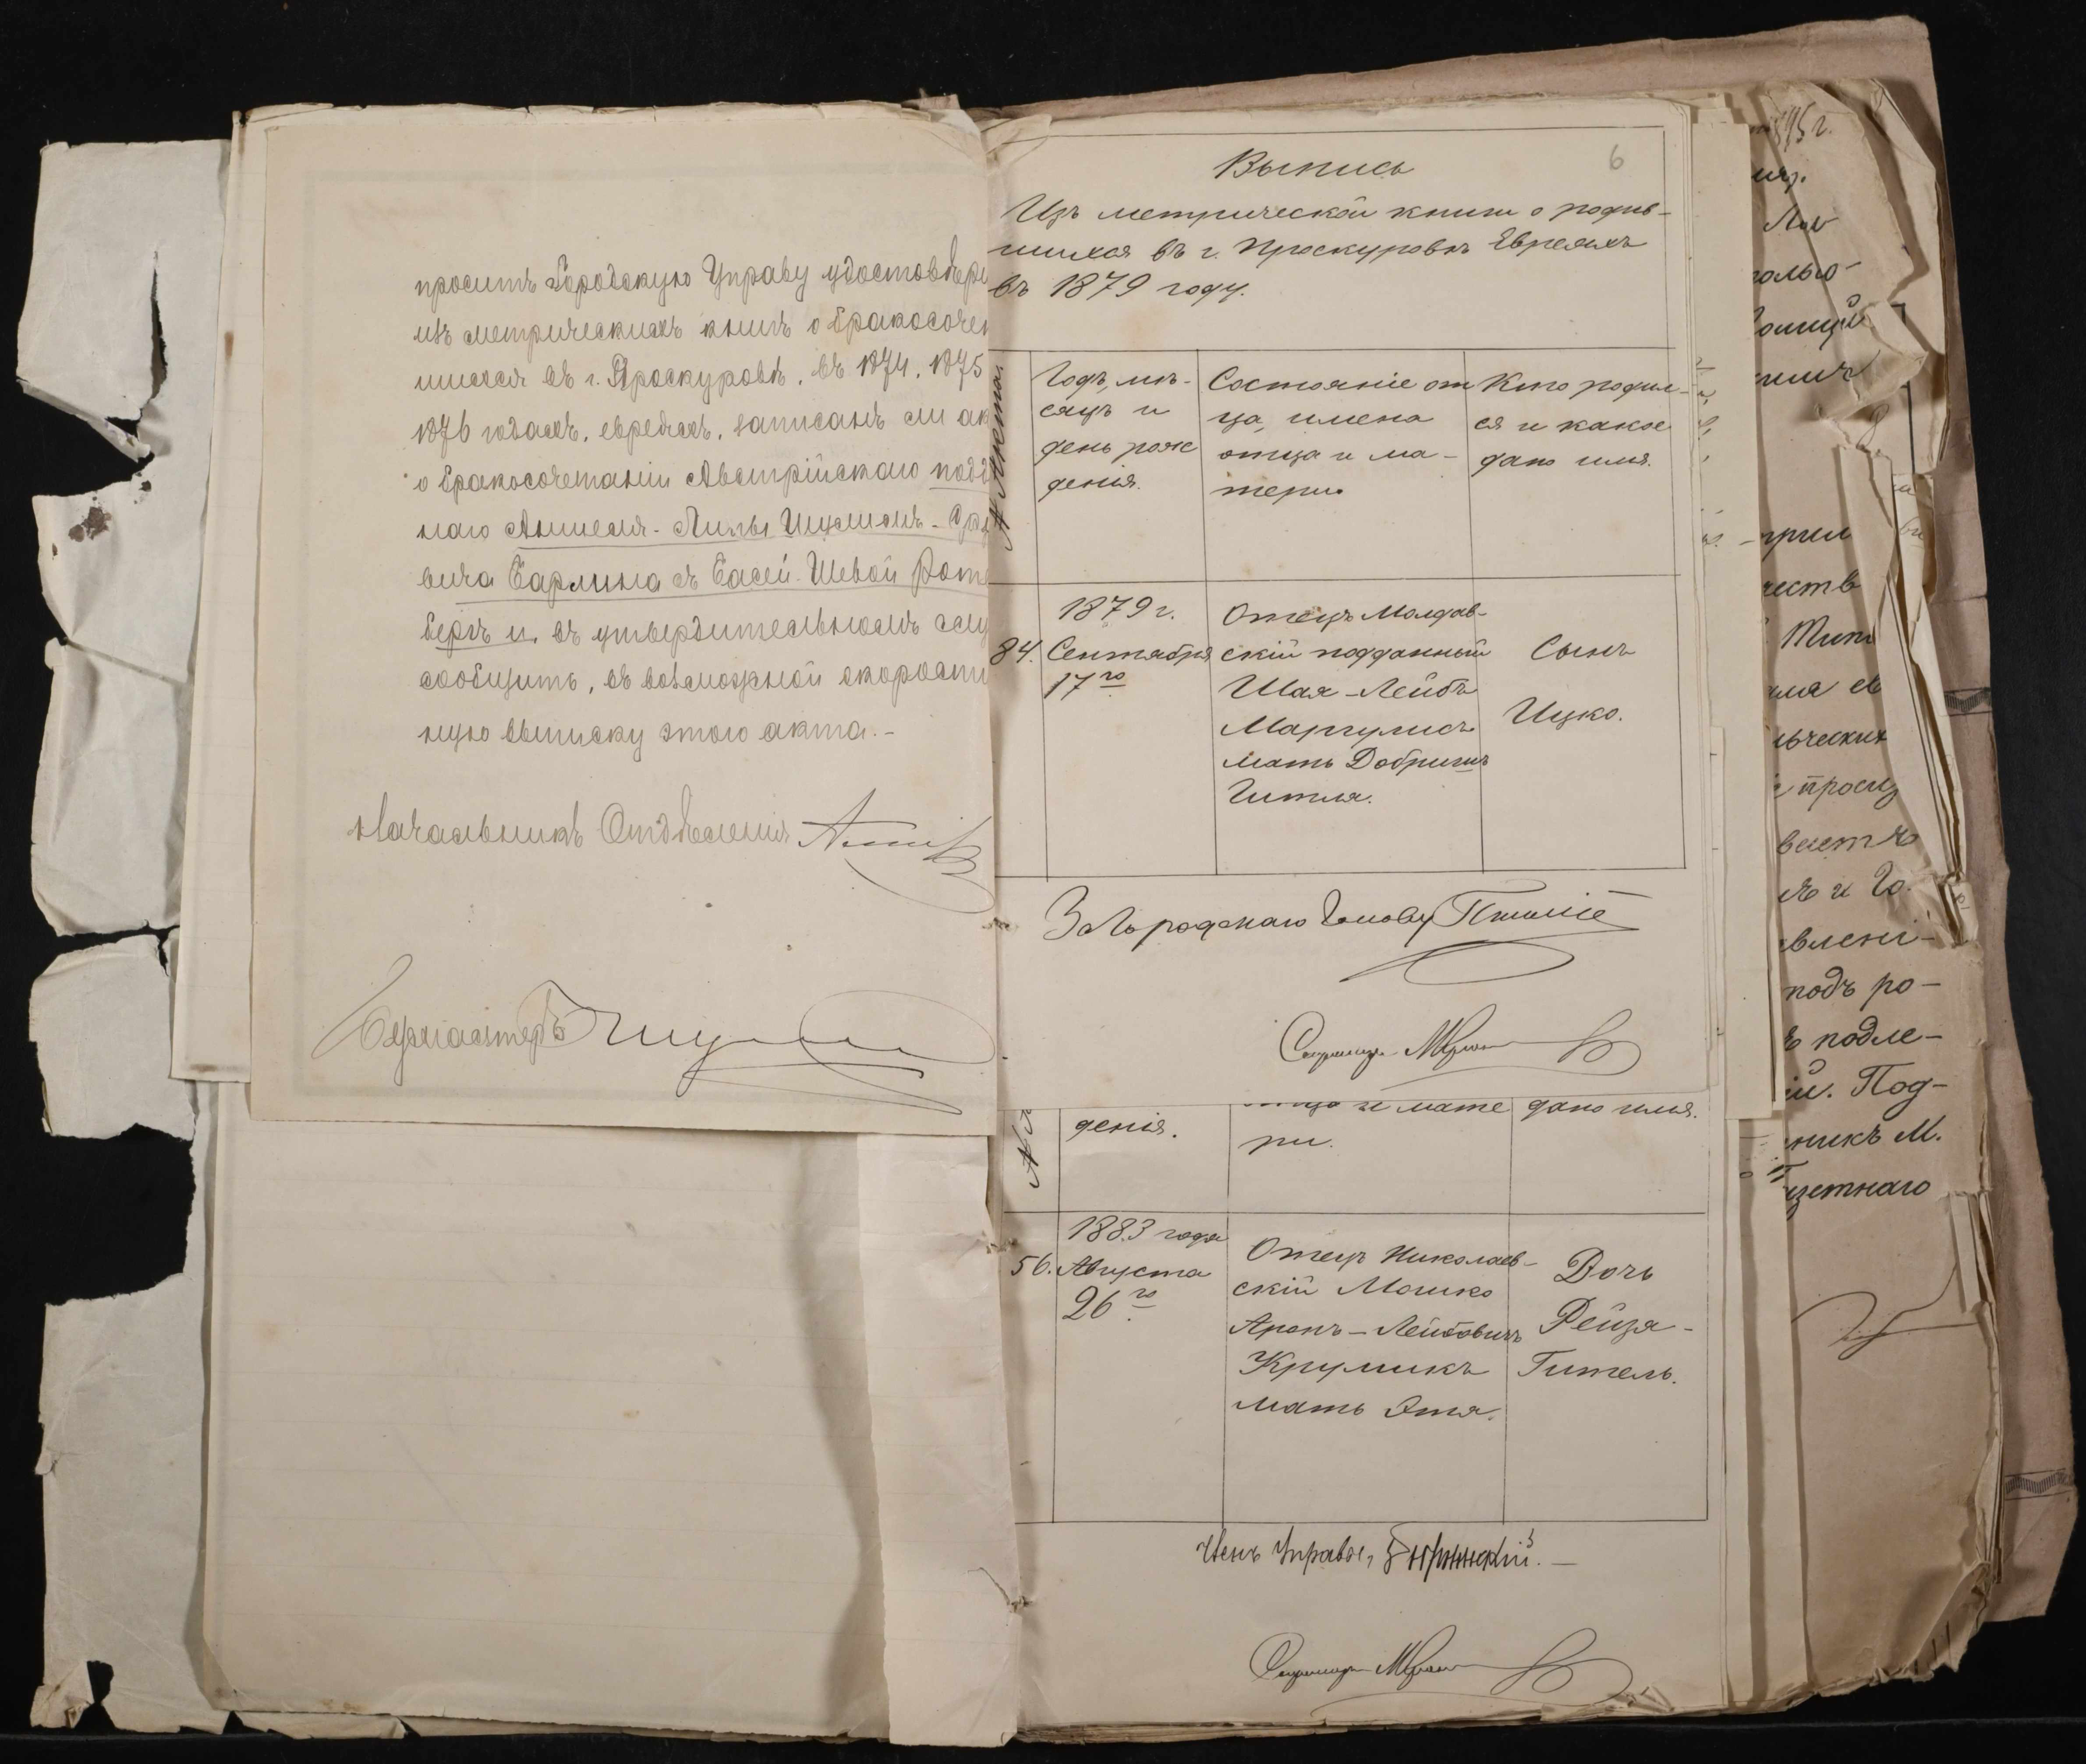 проситъ Городскую Управу удостовѣри
изъ метрическихъ книгъ о бракосочет
шихся въ г. Проскуровѣ, въ 1874, 1875
1876 годахъ, евреяхъ, записанъ ли ак
о бракосочетаніи Австрійскаго подд
наго Аншеля-Липы Шулимъ-
вича Барлина съ Басей-Шевой Рот
бергъ и, въ утвердительномъ слу
сообщить, въ возможной скорости
ную выписку этого акта.-
Начальникъ Отдѣленія
Бургомистръ
6
Выпись
Изъ метрической книги о родив-
шихся въ г. Проскуровѣ Евреяхъ
въ 1879 году.
№ Акта.
Годъ, мѣ-
сяцъ и
день рож
денія.
Состояніе от
ца, имена
отца и ма-
тери.
Кто родил-
ся и какое
дано имя.
84.
1879 г.
Сентября
17го
Отецъ Молдав-
скій подданный
Шая-Лейбъ
Маргулисъ
мать Добришъ
Гитля.
Сынъ
Ицко.
За Городскаго Голову
Секретарь
денія.
отца и мате
ри.
дано имя.
56.
1883 года
Августа
26го
Отецъ Николаев-
скій Мошко
Аронъ-Лейбовичъ
Крупникъ
мать Этя.
Дочь
Рейзя-
Гитель.
Членъ Управы,
Секретарь
95 г.
Лов
честв
просиз
вленi-
подъ ро-
ъ подле-
ій. Под-
никъ М.
четнаго